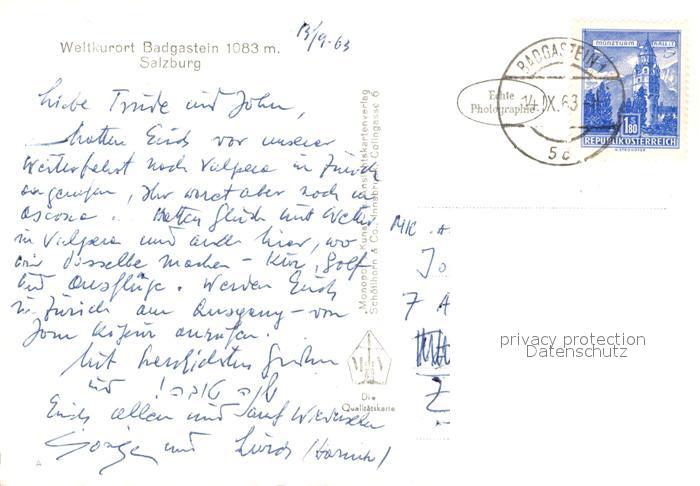 13/9-63
Weltkurort Badgastein 1083 m.
Salzburg
Liebe Trude und John,
hatten Euch vor unserer
Weiterfahrt nach Vulpera in Zürich
angerufen, Ihr waret aber noch in
Ascona.. Hatten Glück mit Wetter
in Vulpera und auch hier, wo
wir dasselbe machen - Kur, Golf
und Ausflüge. Werden Euch
in Zürich am Ausgang - von
Jom Kipur anrufen.
Mit herzlichsten Grüßen
und שנה טובה!
Euch allen und auf Wiedersehen
und
Monopol - Kunst- u. Ansichtskartenverlag
Schöllhorn & Co., Innsbruck, Collingasse 6
Die
Qualitätskarte
A
Echte
Photographie
BADGASTEIN 1
14.IX.63
5c
MÜNZTURM HALL I.T.
1.80
REPUBLIK ÖSTERREICH
MR.
Jo
7 A
Z
privacy protection
Datenschutz